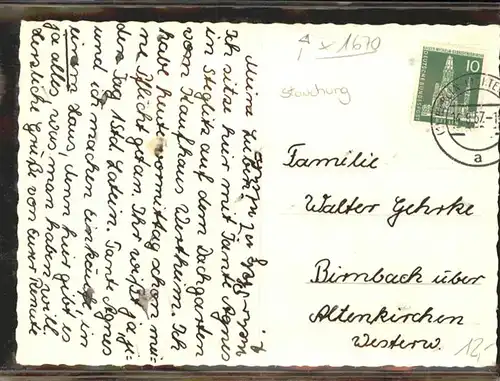 Meine Lieben!
Ich sitze hier mit Tante Agnes
in Steglitz auf dem Dachgarten
vom Kaufhaus Wertheim. Ich
habe heute vormittag schon mei-
ne Pflicht getan. Ihr wißt ja je-
den Tag 1 Std. Latein. Tante Agnes
und ich machen Einkäufe in
einem Haus, denn hier gibt es
ja alles was man haben will.
Herzliche Grüße von Eurer Renate
x 1670
Stauchung
10
DEUTSCHE BUNDESPOST
a
Familie
Walter Gehrke
Birnbach über
Altenkirchen
Westerw.
12,-